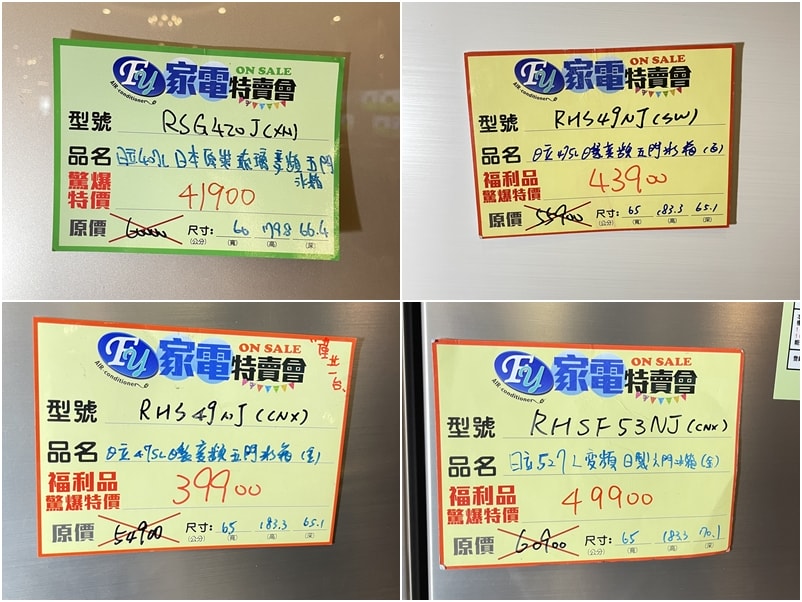 FY 家電特賣會 ON SALE
AIR-conditioner
型號 RSG420J(XN)
品名 日立407L日本原裝玻璃變頻五門
冰箱
驚爆特價 41900
原價 60000 尺寸:(公分) 60(寬) 179.8(高) 66.4(深)
FY 家電特賣會 ON SALE
AIR-conditioner
型號 RHS49NJ(SW)
品名 日立475L日製變頻五門冰箱(白)
福利品
驚爆特價 43900
原價 55900 尺寸:(公分) 65(寬) 183.3(高) 65.1(深)
FY 家電特賣會 ON SALE
AIR-conditioner
僅此一台
型號 RHS49NJ(CNX)
品名 日立475L日製變頻五門冰箱(金)
福利品
驚爆特價 39900
原價 54900 尺寸:(公分) 65(寬) 183.3(高) 65.1(深)
FY 家電特賣會 ON SALE
AIR-conditioner
型號 RHSF53NJ(CNX)
品名 日立527L變頻日製六門冰箱(金)
福利品
驚爆特價 49900
原價 60900 尺寸:(公分) 65(寬) 183.3(高) 70.1(深)